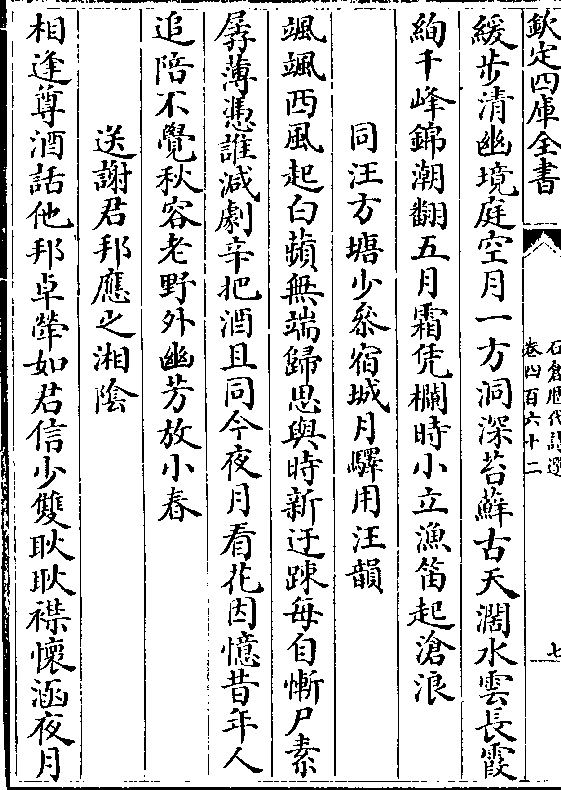 欽定四庫全書
石倉歷代詩選
卷四百六十二
七
緩步清幽境庭空月一方洞深苔蘚古天濶水雲長霞
絢千峰錦潮翻五月霜凭欄時小立漁笛起滄浪
同汪方塘少叅宿城月驛用汪韻
颯颯西風起白蘋無端歸思與時新迂踈每自慚尸素
孱薄憑誰減劇辛把酒且同今夜月看花因憶昔年人
追陪不覺秋容老野外幽芳放小春
送謝君邦應之湘隂
相逢尊酒話他邦卓犖如君信少雙耿耿襟懷涵夜月